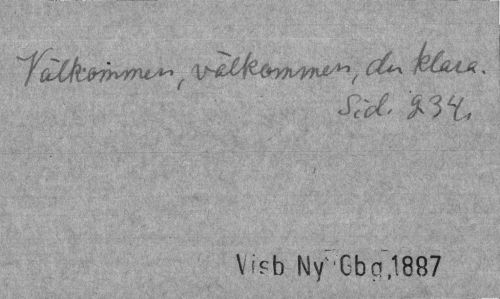 Välkommen, välkommen, du klara.
Sid. 234.
Visb Ny Gbg, 1887